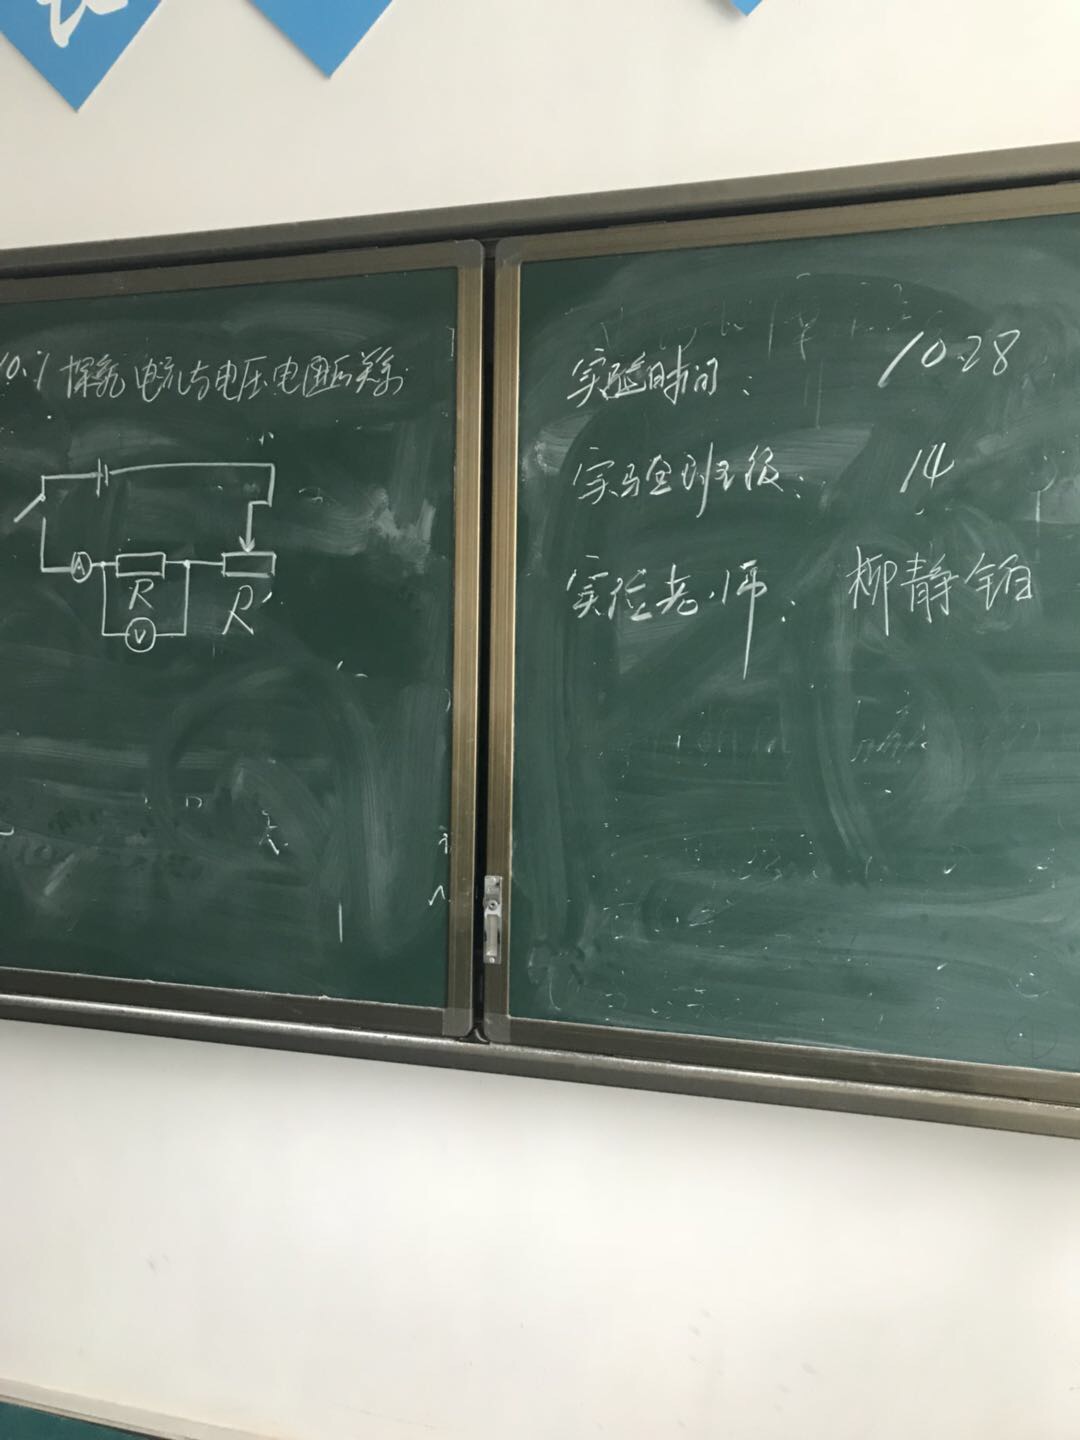 10.1 探究电流与电压电阻的关系
A
R
R'
V
实验时间： 10.28
实验班级： 14
实验老师： 柳静铂